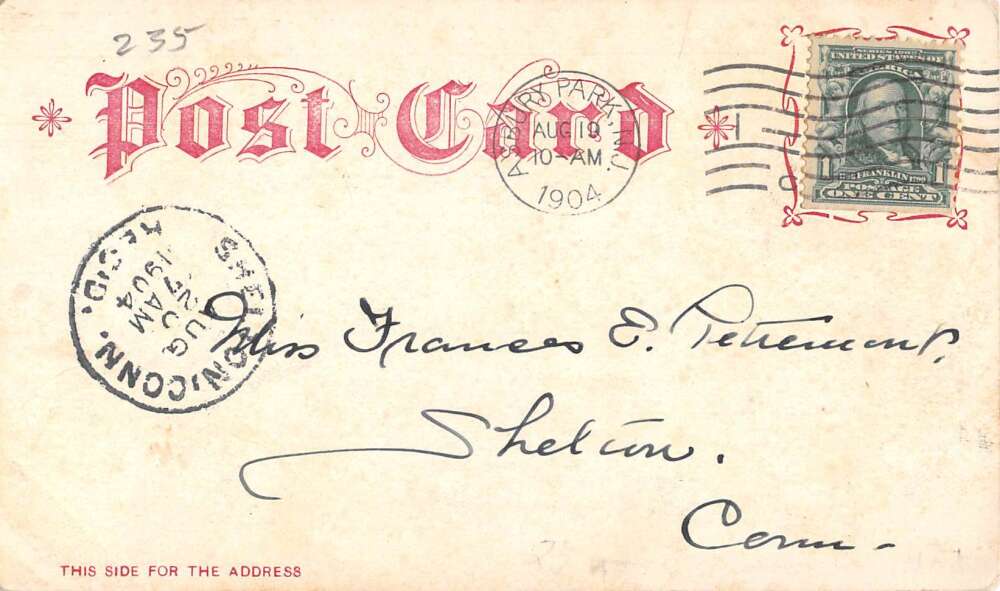 235
Post Card
ASBURY PARK, N.J.
AUG 19
10-AM
1904
1
SERIES 1902
UNITED STATES OF
AMERICA
FRANKLIN
POSTAGE
ONE CENT
SHELTON, CONN.
AUG
7 AM
1904
REC'D.
Miss Frances E.
Shelton.
Conn-
THIS SIDE FOR THE ADDRESS